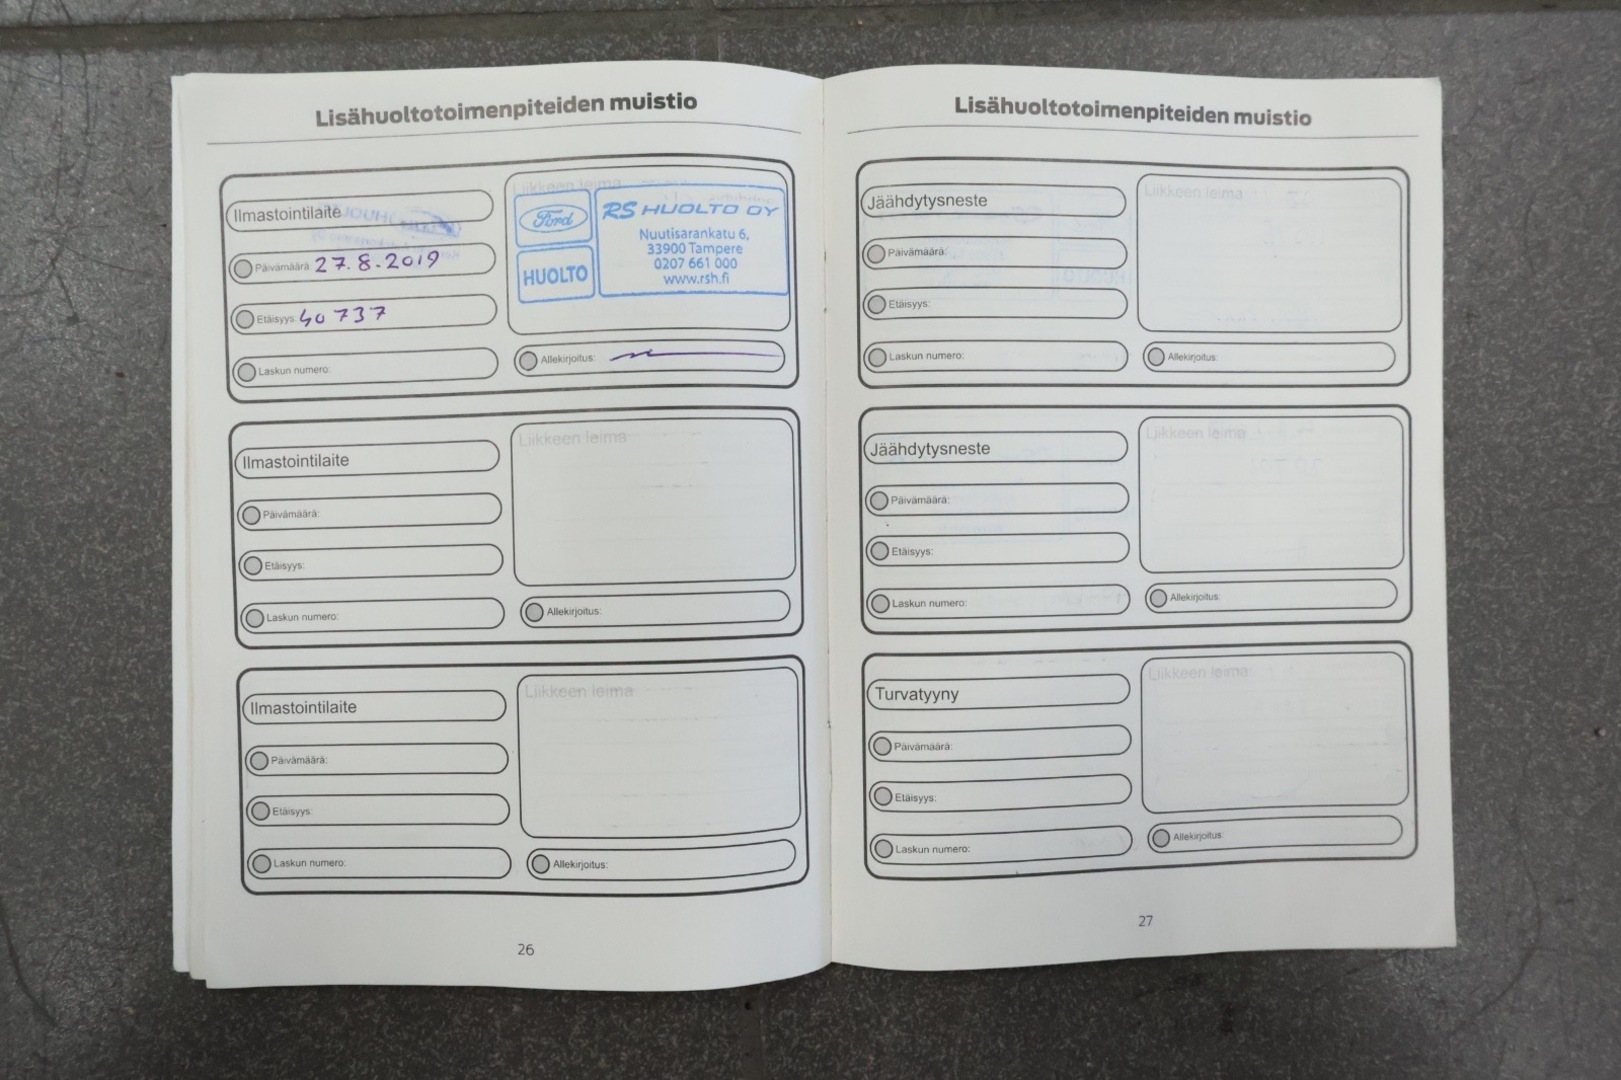 Lisähuoltotoimenpiteiden muistio
Ilmastointilaite
Päivämäärä: 27.8.2019
Etäisyys: 40 737
Laskun numero:
Liikkeen leima
Ford
HUOLTO
RS HUOLTO OY
Nuutisarankatu 6,
33900 Tampere
0207 661 000
www.rsh.fi
Allekirjoitus:
Ilmastointilaite
Päivämäärä:
Etäisyys:
Laskun numero:
Liikkeen leima
Allekirjoitus:
Ilmastointilaite
Päivämäärä:
Etäisyys:
Laskun numero:
Liikkeen leima
Allekirjoitus:
26
Lisähuoltotoimenpiteiden muistio
Jäähdytysneste
Päivämäärä:
Etäisyys:
Laskun numero:
Liikkeen leima
Allekirjoitus:
Jäähdytysneste
Päivämäärä:
Etäisyys:
Laskun numero:
Liikkeen leima
Allekirjoitus:
Turvatyyny
Päivämäärä:
Etäisyys:
Laskun numero:
Liikkeen leima
Allekirjoitus:
27